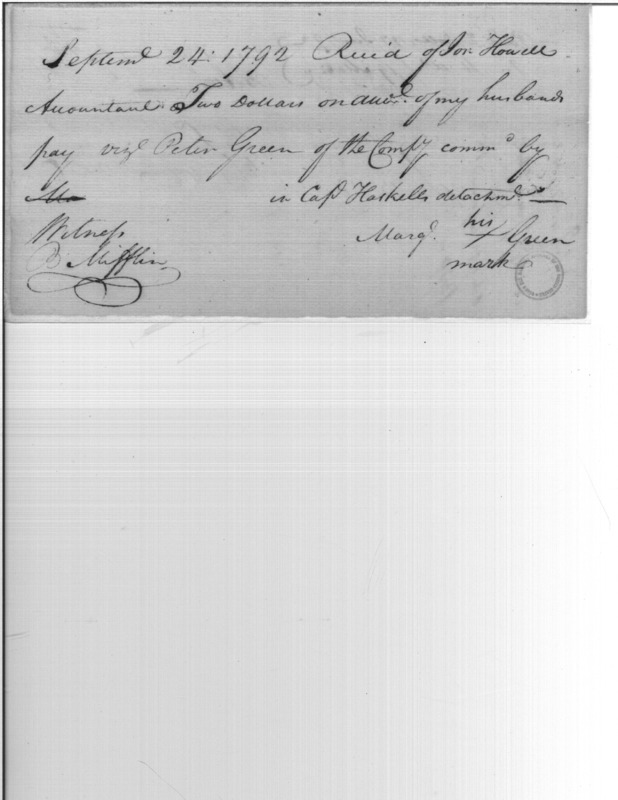 Septemr 24: 1792 Recd of Jos. Howell
Accountant Two Dollars on acct. of my husbands
pay vizt Peter Green of the Compy commd by
in Capt Haskells detachmt.
Witness
Margt. his × Green
mark
B Mifflin